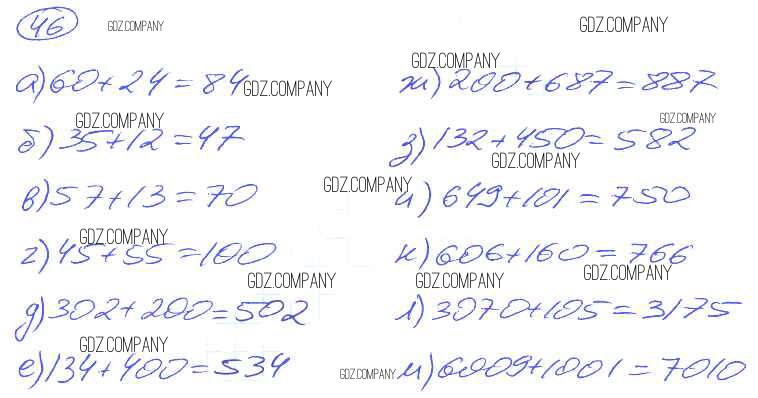 46 GDZ.COMPANY GDZ.COMPANY
а) 60+24=84 GDZ.COMPANY
GDZ.COMPANY
б) 35+12=47
в) 57+13=70
GDZ.COMPANY
г) 45+55=100
GDZ.COMPANY
д) 302+200=502
GDZ.COMPANY
е) 134+400=534
GDZ.COMPANY
ж) 200+687=887
GDZ.COMPANY
з) 132+450=582
GDZ.COMPANY
GDZ.COMPANY и) 649+101=750
к) 606+160=766
GDZ.COMPANY GDZ.COMPANY
л) 3070+105=3175
GDZ.COMPANY м) 6009+1001=7010